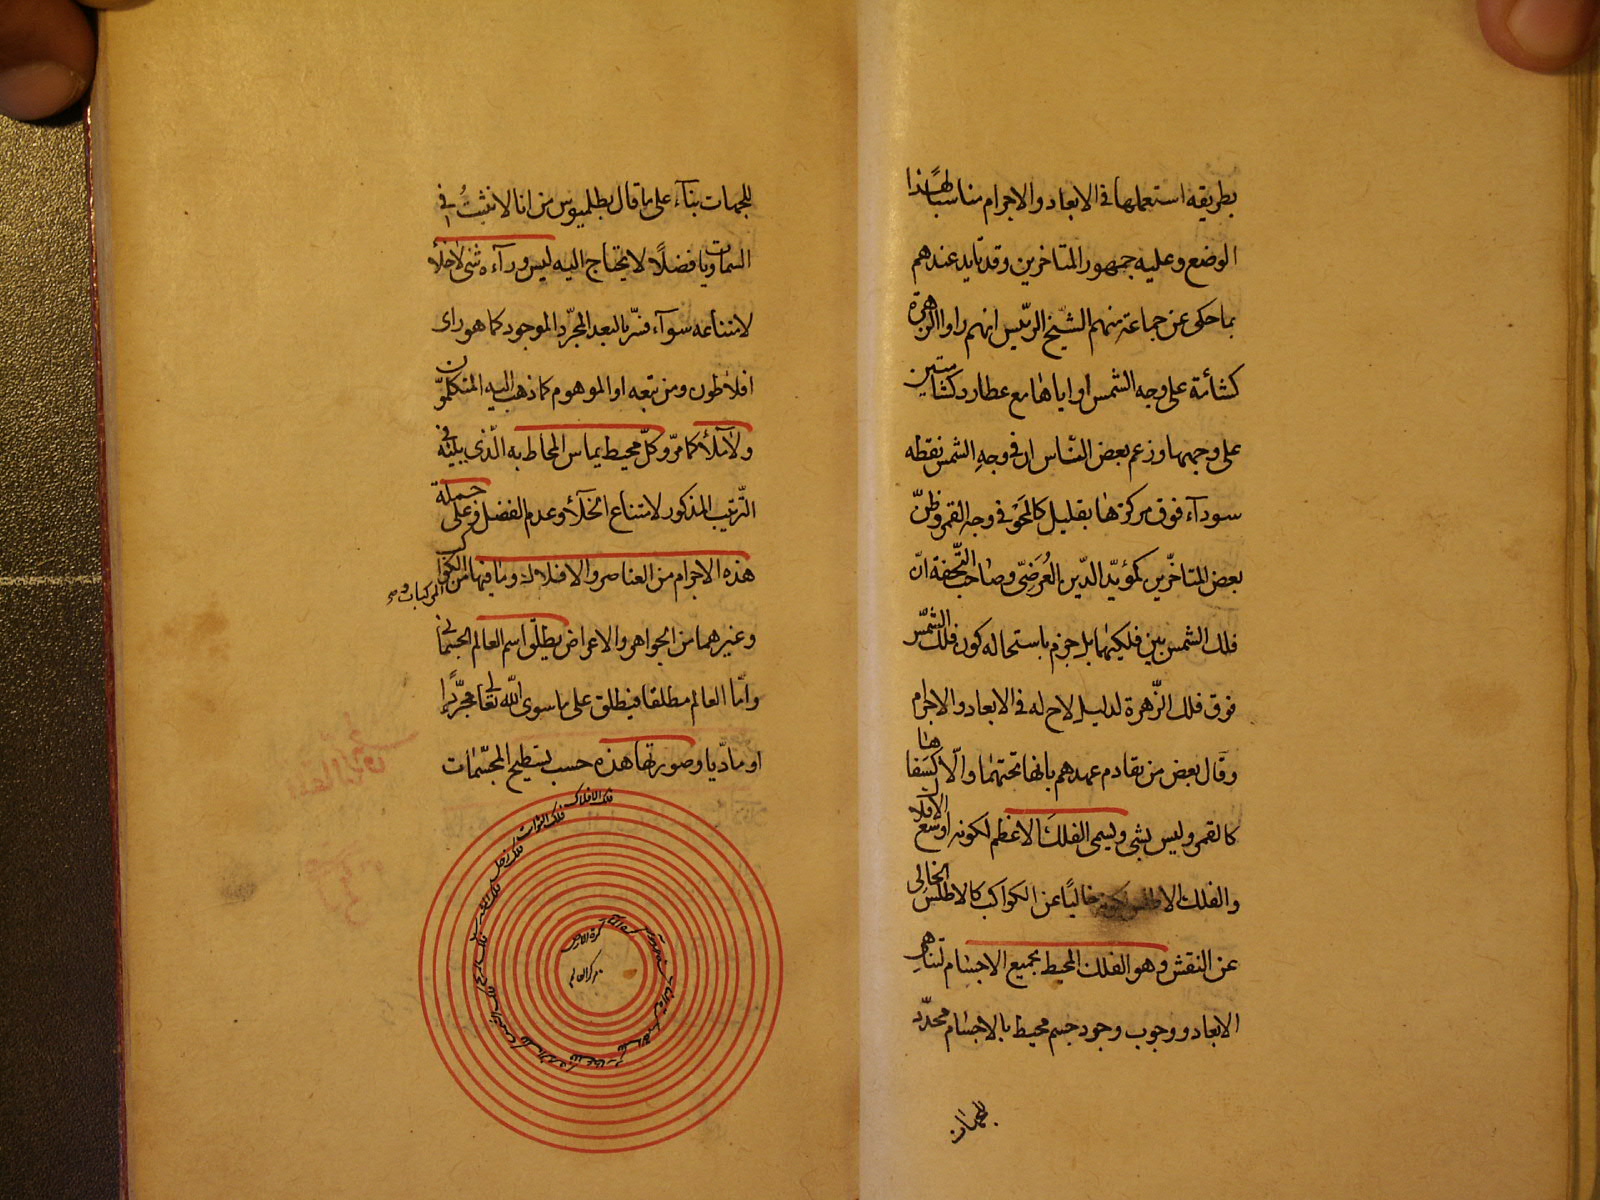 بطريقه استعملها في الابعاد والاجرام مناسبا لهذا
الوضع وعليه جمهور المتاخرين وقد تايد عندهم
بما حكى عن جماعة منهم الشيخ الرئيس انهم راوا الزهرة
كشامة على وجه الشمس او اياها مع عطارد كشامتين
على وجهها وزعم بعض الناس ان في وجه الشمس نقطه
سودآء فوق مركزها بقليل كالمحو في وجه القمر وظنّ
بعض المتاخّرين كمؤيّد الدّين العُرَضِيّ وصاحب التّحفة انّ
فلك الشمس بين فلكيهما بل جزم باستحاله كون فلك الشّمس
فوق فلك الزّهرة لدليل لاح له في الابعاد والاجرام
وقال بعض من تقادم عهدهم بانها تحتهما والّا لكسفاها
كالقمر وليس بشئ ويسمى الفلكَ الاعظم لكونه اوسع الافلاك
والفلك الاطلس لكونه خاليًا عن الكواكب كالاطلس الخالى
عن النقش وهو الفلك المحيط بجميع الاجسام لتناهى
الابعاد ووجوب وجود جسم محيط بالاجسام محدّد
للجهات
للجهات بنآء على ما قال بطلميوس من انا لا نثبتُ في
السماويات فضلًا لا يحتاج اليه ليس ورآءه شئ لا خلأ
لامتناعه سوآء فسّر بالبعد المجرّد الموجود كما هو راى
افلاطون ومن تبعه او الموهوم كما ذهب اليه المتكلّمون
ولا ملأ كما مرّ وكلّ محيط يماس المحاط به الّذى يليه في
التّرتيب المذكور لامتناع الخلأ وعدم الفضل وعلى جملة
هذه الاجرام من العناصر والافلاك وما فيها من الكواكب
والمركبات صح
وغيرهما من الجواهر والاعراض يطلق اسم العالم الجسماني
وامّا العالم مطلقا فيطلق على ما سوى اللّه تعالى مجرّدًا
او مادّيا وصورتها هذه حسب تسطيح المجسّمات
فلك الافلاك
فلك الثوابت
فلك زحل
فلك المشترى
فلك المريخ
فلك الشمس
فلك الزهرة
فلك عطارد
فلك القمر
كرة النار
كرة الهوآء
كرة المآء
كرة الارض
مركز العالم